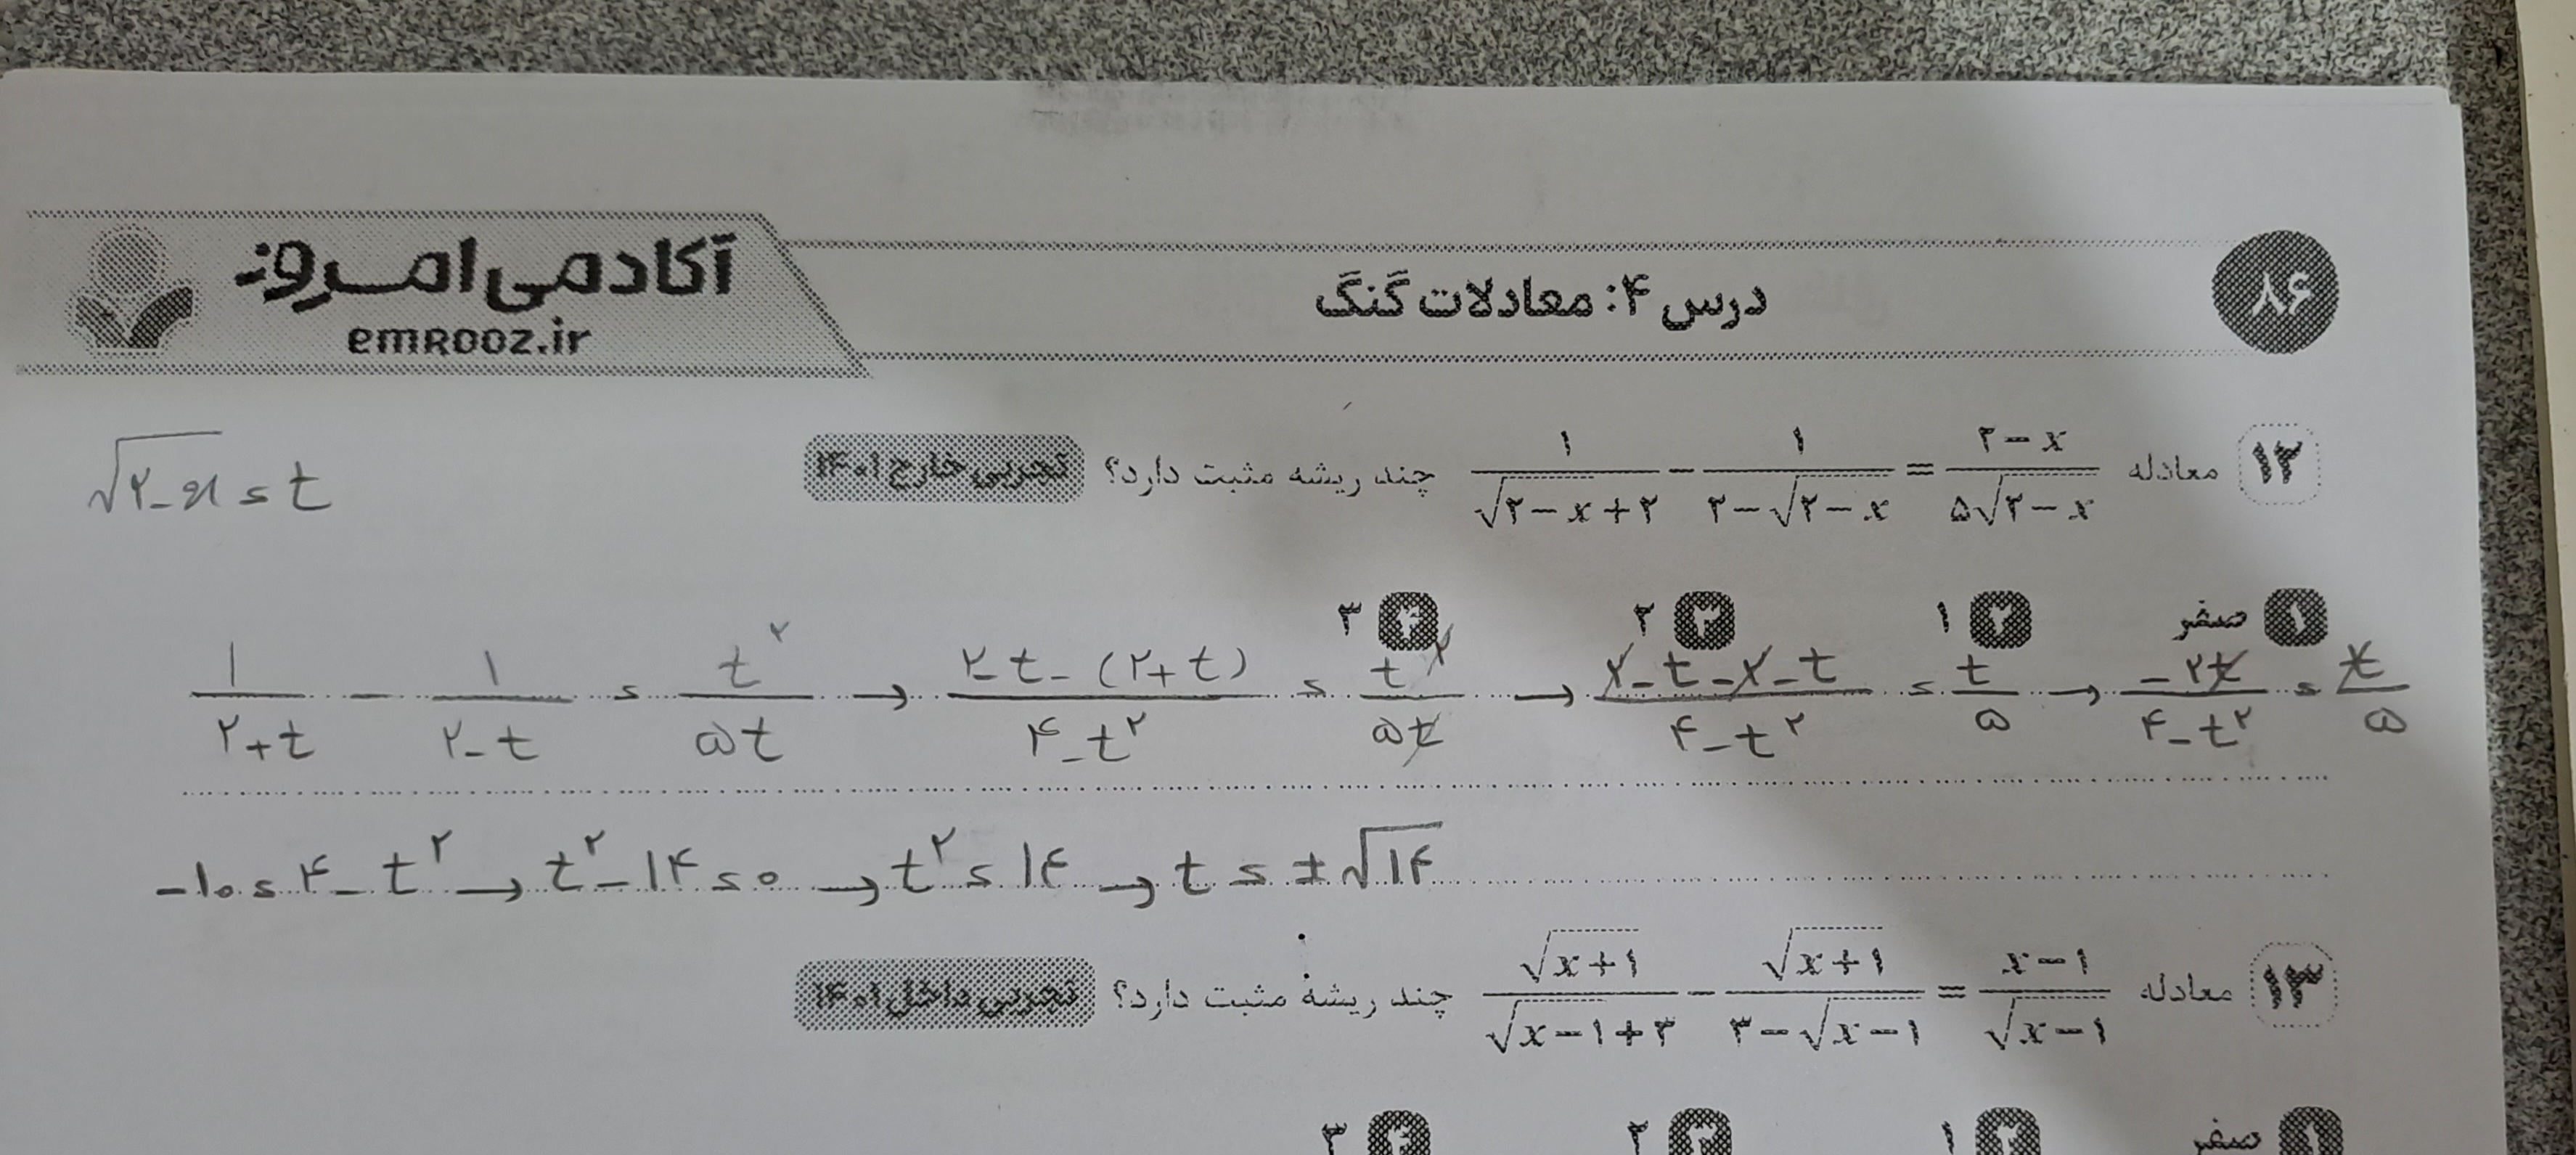 آکادمی امروز
emrooz.ir
درس ۴: معادلات گنگ
۸۶
۱۲ معادله (۲-x)/(۵√(۲-x)) = ۱/(۲-√(۲-x)) - ۱/(√(۲-x)+۲) چند ریشه مثبت دارد؟ تجربی خارج ۱۴۰۱
√(۲-x) = t
۱ صفر ۲ ۱ ۳ ۲ ۴ ۳
۱/(۲+t) - ۱/(۲-t) = t^۲/(۵t) → (۲-t-(۲+t))/(۴-t^۲) = t^۲/(۵t) → (۲-t-۲-t)/(۴-t^۲) = t/۵ → -۲t/(۴-t^۲) = t/۵
-۱۰ = ۴-t^۲ → t^۲-۱۴=۰ → t^۲=۱۴ → t = ±√۱۴
۱۳ معادله (x-۱)/√(x-۱) = √(x+۱)/(۳-√(x-۱)) - √(x+۱)/(√(x-۱)+۳) چند ریشهٔ مثبت دارد؟ تجربی داخل ۱۴۰۱
۱ صفر ۲ ۱ ۳ ۲ ۴ ۳